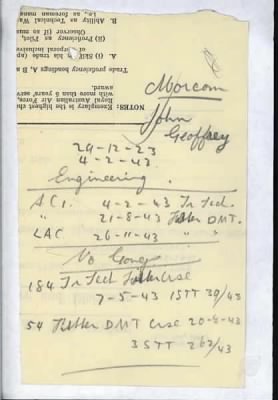 B. Ability as Technical
i.e., as foreman
(ii) Proficiency as Pilot,
Observer as
A. (i) Skill in his trade
corporal inclusive
Trade proficiency headings A, B a
award.
with more than 5 years' serv
Royal Australian Air Force,
NOTES: Exemplary is the highest cha
Morcom
John
Geoffrey
29-12-23
4-2-43
Engineering.
AC1. 4-2-43 Tr Tech.
" 21-8-43 Fitter DMT.
LAC 26-11-43 " "
No Congs
184 Tr Tech Fitter Crse
7-5-43 1STT 39/43
54 Fitter DMT Crse 20-8-43
3STT 262/43